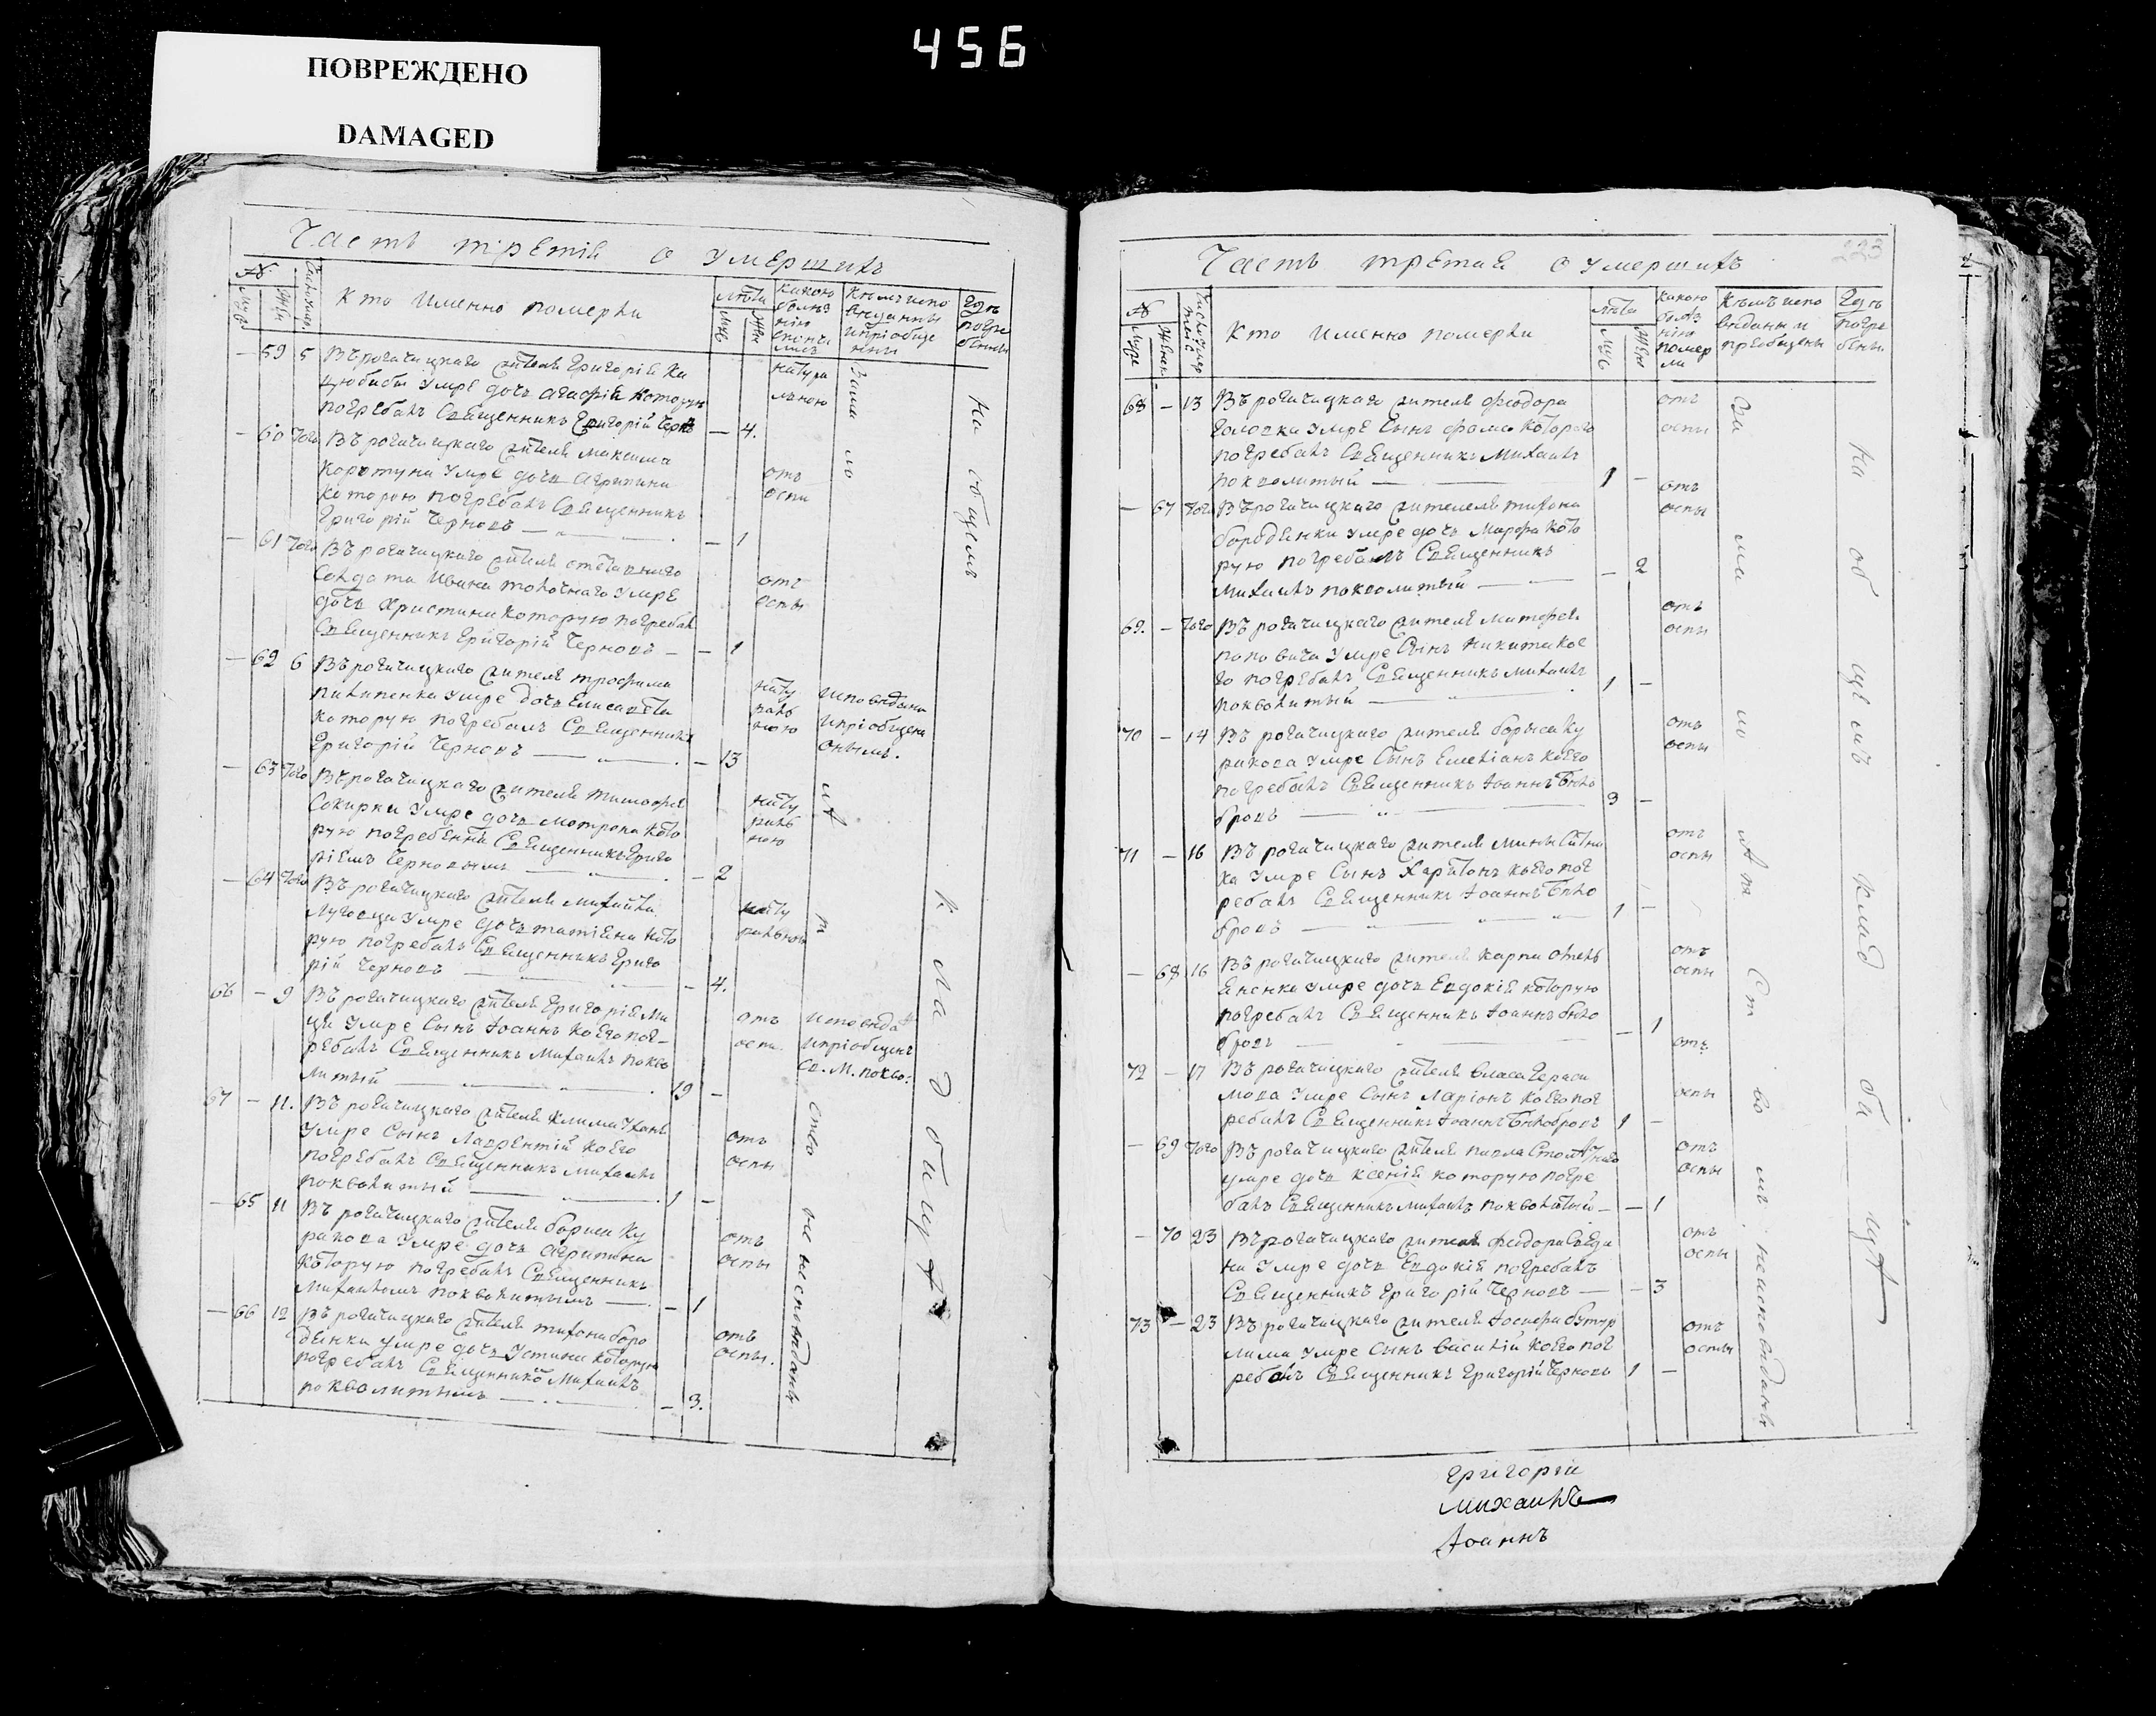 ПОВРЕЖДЕНО
DAMAGED
456
Часть третія о умершихъ
№
Кто Именно померли
лѣта
какою болѣзнію скончались
Кемъ исповеданны и пріобщенны
Гдѣ погребенны
59 5 Въ рогачицкаго жителя Григорія Ка
умре дочь Агафія которую
погребалъ Священникъ Григорій Черновъ — 4.
натуральною
60 Того Въ рогачицкаго жителя Максима
Коротуна Умре дочь Агрипина
которую погребалъ Священникъ
Григорій Черновъ — 1
отъ оспы
61 Того Въ рогачицкаго жителя отставнаго
Солдата Ивана Умре
дочь Христина которую погребалъ
Священникъ Григорій Черновъ — 1
отъ оспы
62 6 Въ рогачицкаго жителя трофима
Пилипенка умре дочь Елисавета
которую погребалъ Священникъ
Григорій Черновъ — 13
натуральною
исповедана и пріобщена онымъ.
63 Того Въ рогачицкаго жителя тимофея
Сокирки Умре дочь Мотрона кото
рую погребенна Священникъ Григо
ріемъ Черновымъ — 2
натуральною
64 Того Въ рогачицкаго жителя Михайла
Луговца Умре дочь татіяна кото
рую погребалъ Священникъ Григо
рій Черновъ — 4.
натуральною
66 — 9 Въ рогачицкаго жителя Григорія
Умре Сынъ Іоаннъ коего пог-
ребалъ Священникъ Михаилъ покво
литый 19 —
отъ оспы
исповеданъ и пріобщенъ Св. М. покво:
67 — 11. Въ рогачицкаго жителя Клима
Умре Сынъ Лаврентій коего
погребалъ Священникъ Михаилъ
покволитый 1 —
отъ оспы
— 65 11 Въ рогачицкаго жителя бориса Ку
ракова Умре дочь Агрипина
которую погребалъ Священникъ
Михаиломъ покволитымъ — 1
отъ оспы
— 66 12 Въ рогачицкаго жителя тихона боро
денки умре дочь Устина которую
погребалъ Священнико Михаилъ
покволитымъ — 3.
отъ оспы.
За мало лѣтство не исповѣданы
На общемъ кладбищѣ
223
Часть третия о умершихъ
№
Кто Именно померли
лѣта
какою болѣзнію померли
Кѣмъ исповѣданы и преобщены
Гдѣ погребены
68 — 13 Въ рогачицкаго жителя феодора
Головка умре Сынъ фома которого
погребалъ Священникъ Михаилъ
покволитый — 1 —
отъ оспы
— 67 Того Въ рогачицкаго жителя тихона
бороденки умре дочь Марфа кото
рую погребалъ Священникъ
Михаилъ покволитый — 2
отъ оспы
69. — Того Въ рогачицкаго жителя Митофея
поповича Умре Сынъ Никита кое
го погребалъ Священникъ Михаилъ
покволитый 1 —
отъ оспы
70 — 14 Въ рогачицкаго жителя борыса Ку
ракова Умре Сынъ Емеліанъ коего
погребалъ Священникъ Іоаннъ Бѣло
бровъ 3 —
отъ оспы
71 — 16 Въ рогачицкаго жителя Мины Ситни
ка Умре Сынъ Харитонъ коего пог
ребалъ Священникъ Іоаннъ Бѣло
бровъ 1 —
отъ оспы
— 68 16 Въ рогачицкаго жителя карпа Омель
яненка умре дочь Евдокія которую
погребалъ Священникъ Іоаннъ бѣло
бровъ — 1
отъ оспы
72 — 17 Въ рогачицкаго жителя власа Гераси
мова Умре Сынъ Ларіонъ коего пог
ребалъ Священникъ Іоаннъ Бѣлобровъ 1 —
отъ оспы
— 69 Того Въ рогачицкаго жителя павла
умре дочь Ксенія которую погре
балъ Священникъ Михаилъ покволитый — 1
отъ оспы
— 70 23 Въ рогачицкаго жителя феодора
Умре дочь Евдокія погребалъ
Священникъ Григорій Черновъ — 3
отъ оспы
73 — 23 Въ рогачицкаго жителя Іосифа бутур
лима умре Сынъ василій коего пог
ребалъ Священникъ Григорій Черновъ 1 —
отъ оспы
За мало лѣтствомъ неисповѣданы
На общемъ кладбищѣ
Григорій
Михаилъ
Іоаннъ